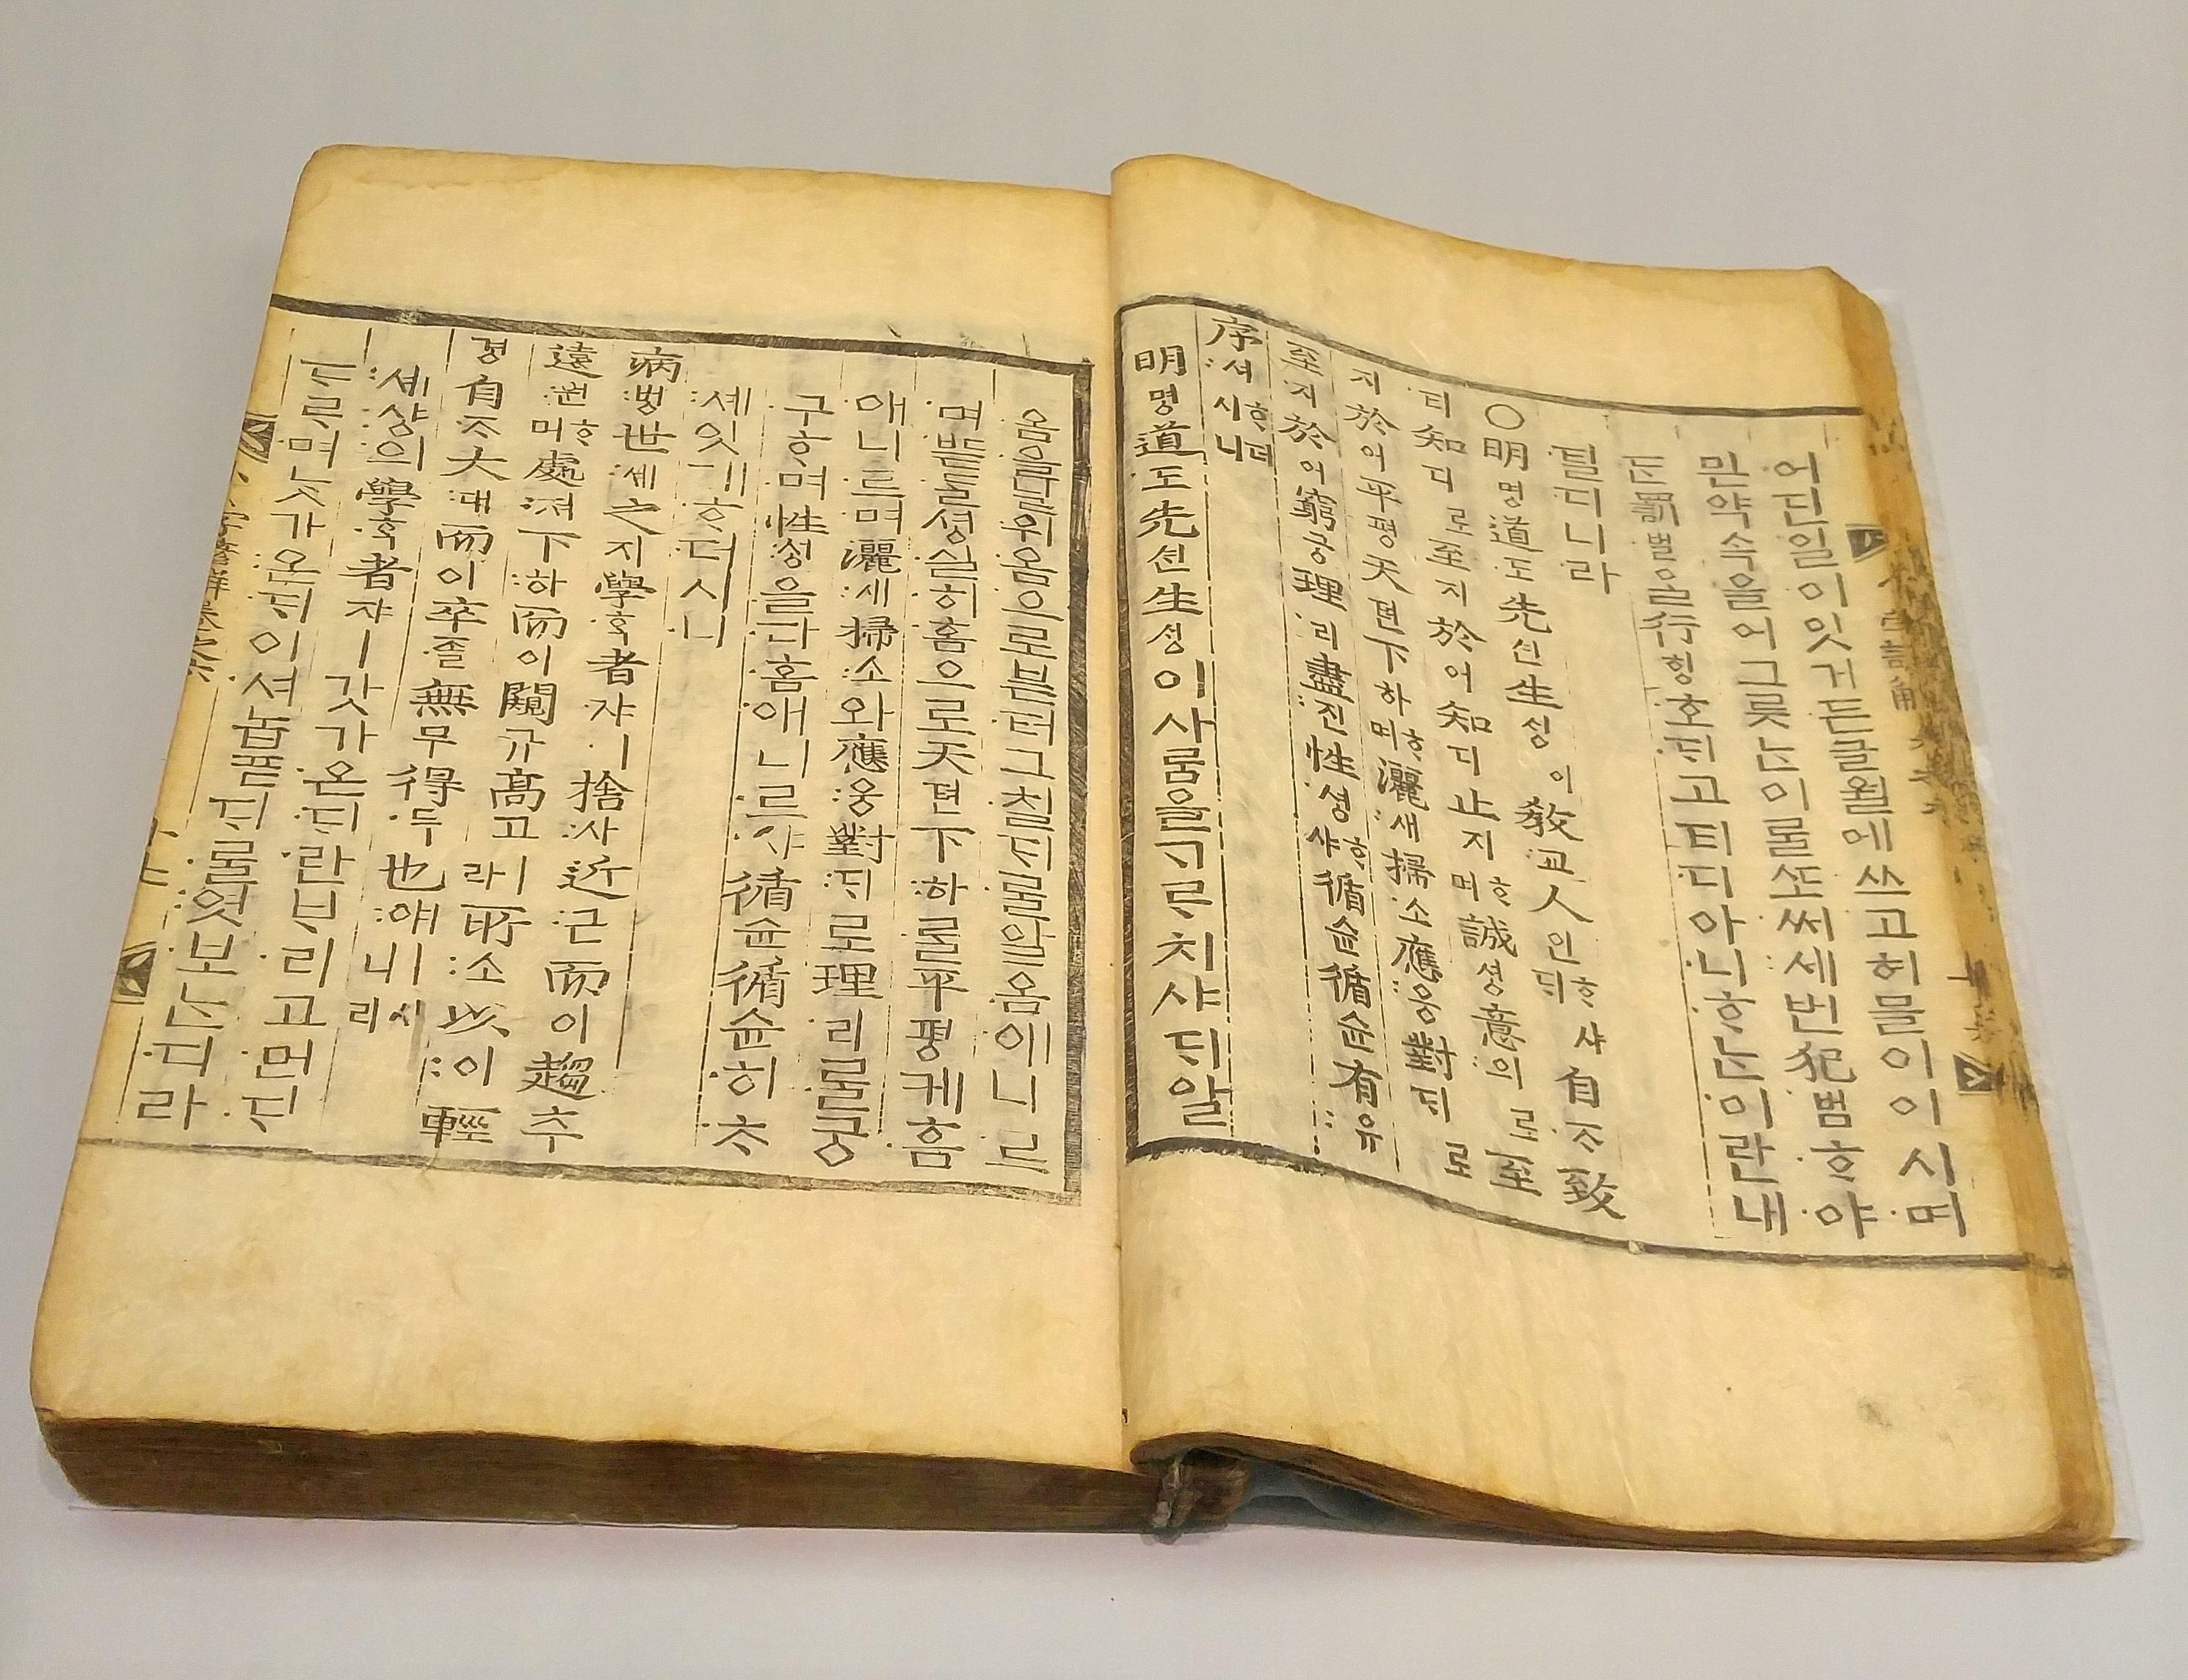 어딘일이잇거든글월에쓰고허믈이이시며
믿약속을어그릇ᄂᆞᆫ이ᄅᆞᆯᄯᅩ써세번犯범ᄒᆞ야
ᄃᆞᆫ罰벌을行ᄒᆡᆼ호ᄃᆡ고티디아니ᄒᆞᄂᆞᆫ이란내
틸디니라
○明명道도先션生ᄉᆡᆼ이敎교人인ᄒᆞ샤ᄃᆡ自ᄌᆞ致
티知디로至지於어知디止지ᄒᆞ며誠셩意의로至
지於어平평天텬下하ᄒᆞ며灑새掃소應응對ᄃᆡ로
至지於어窮궁理리盡진性셩ᄒᆞ샤循슌循슌有유
序셔ᄒᆞ더시니
明명道도先션生ᄉᆡᆼ이사ᄅᆞᆷ을ᄀᆞᄅᆞ치샤ᄃᆡ알
옴을닐위옴으로븓터그칠ᄃᆡᄅᆞᆯ알옴애니르
며ᄠᅳᆮ을셩실히홈으로天텬下하ᄅᆞᆯ平평케홈
애니르며灑새掃소와應응對ᄃᆡ로理리ᄅᆞᆯ궁
구ᄒᆞ며性셩을다홈애니르샤循슌循슌히ᄎᆞ
셰잇게ᄒᆞ더시니
病병世셰之지學ᄒᆞᆨ者쟈ㅣ捨샤近근而이趨추
遠원ᄒᆞ며處쳐下하而이闚규高고ㅣ라所소以이輕
경自ᄌᆞ大대而이卒졸無무得득也야ㅣ니시리
셰샹의學ᄒᆞᆨ者쟈ㅣ갓가온ᄃᆡ란ᄇᆞ리고먼ᄃᆡ
ᄃᆞ르며ᄂᆞᆺ가온ᄃᆡ이셔놉픈ᄃᆡᄅᆞᆯ엿보ᄂᆞᆫ디라